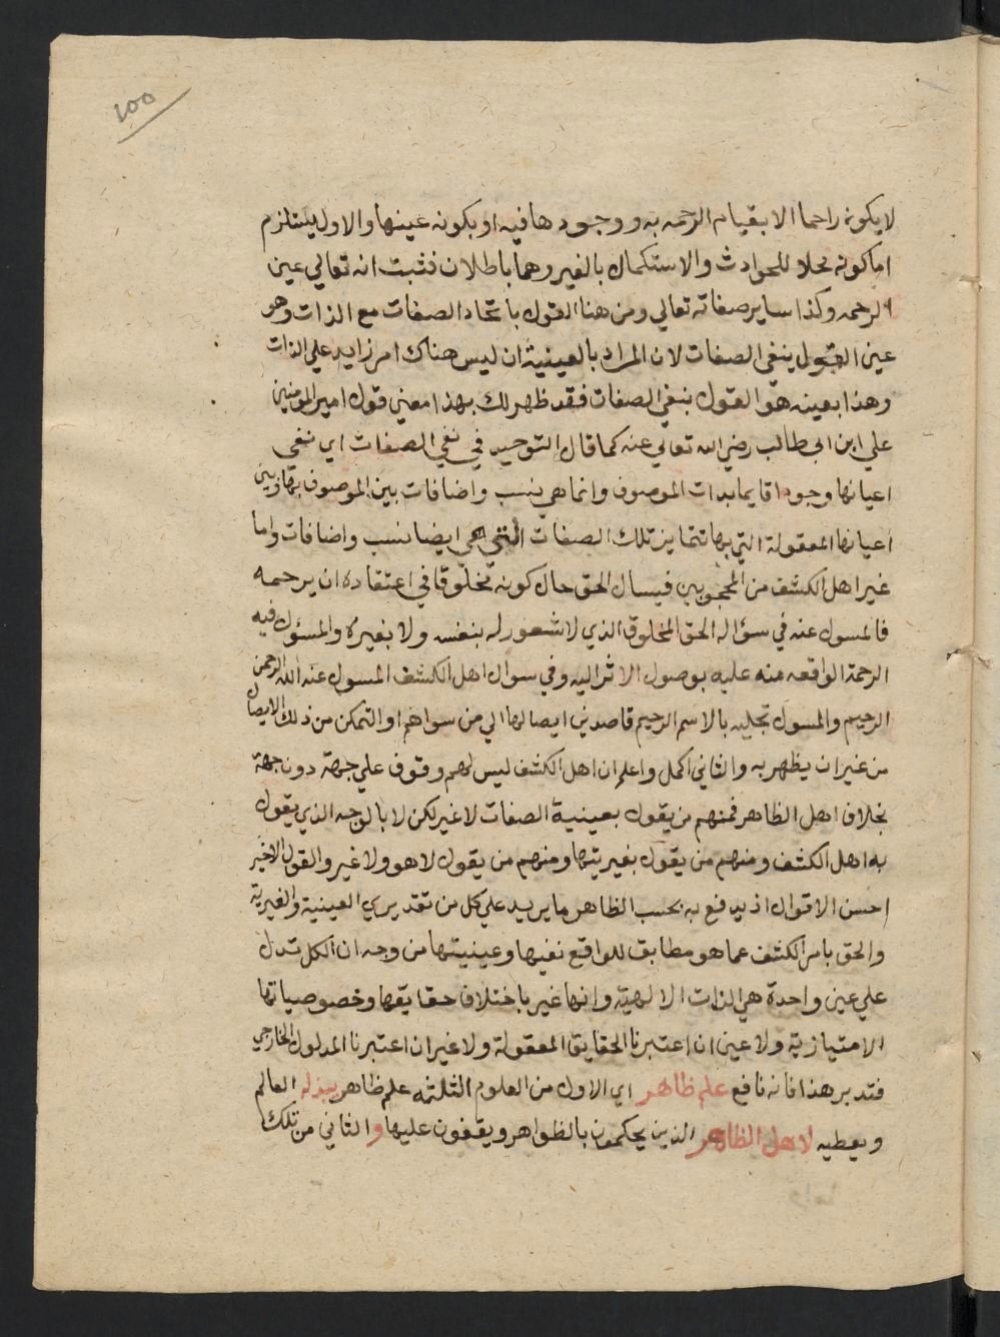 ١٥٥
لا يكونه راحما الا بقيام الرحمه به ووجودها فيه او بكونه عينها والاول يستلزم
اما كونه محلا للحوادث والاستكمال بالغير وهما باطلان فثبت انه تعالي عين
الرحمه وكذا ساير صفاته تعالي ومن هنا القول باتحاد الصفات مع الذات وهو
عين القول بنفي الصفات لان المراد بالعينية ان ليس هناك امر زايد علي الذات
وهذا بعينه هو القول بنفي الصفات فقد ظهر لك بهذا معني قول امير المومنين
علي ابن ابي طالب رضي الله تعالي عنه كما قال التوحيد في نفي الصفات اي نفي
اعيانها وجودا قايما بذات الموصوف وانما هي نسب واضافات بين الموصوف بها وبين
اعيانها المعقولة التي بها تتمايز تلك الصفات التي هي ايضا نسب واضافات واما
غير اهل الكشف من المحجوبين فيسال الحق حال كونه مخلوقا في اعتقاده ان يرحمه
فالمسول عنه في سؤاله الحق المخلوق الذي لا شعور له بنفسه ولا بغيره والمسؤل فيه
الرحمة الواقعه منه عليه بوصول الاثر اليه وفي سوال اهل الكشف المسول عنه الله الرحمن
الرحيم والمسول تجليه بالاسم الرحيم قاصدين ايصالها الي من سواهم او التمكن من ذلك الايصال
من غير ان يظهر به والثاني اكمل واعلم ان اهل الكشف ليس لهم وقوف علي جهة دون جهة
بخلاف اهل الظاهر فمنهم من يقول بعينية الصفات لا غير لكن لا بالوجه الذي يقول
به اهل الكشف ومنهم من يقول بغيريتها ومنهم من يقول لا هو ولا غير والقول الاخير
احسن الاقوال اذ يدفع به بحسب الظاهر ما يريد علي كل من تقديري العينية والغيرية
والحق بامر الكشف عما هو مطابق للواقع نفيها وعينيتها من وجه ان الكل تدل
علي عين واحدة هي الذات الالهية وانها غير باختلاف حقايقها وخصوصياتها
الامتيازية ولا عين ان اعتبرنا الحقايق المعقولة ولا غير ان اعتبرنا المدلول الخارجي
فتدبر هذا فانه نافع علم ظاهر اي الاول من العلوم الثلثه علم ظاهر يبذله العالم
ويعطيه لاهل الظاهر الذين يحكمون بالظواهر ويقفون عليها والثاني من تلك